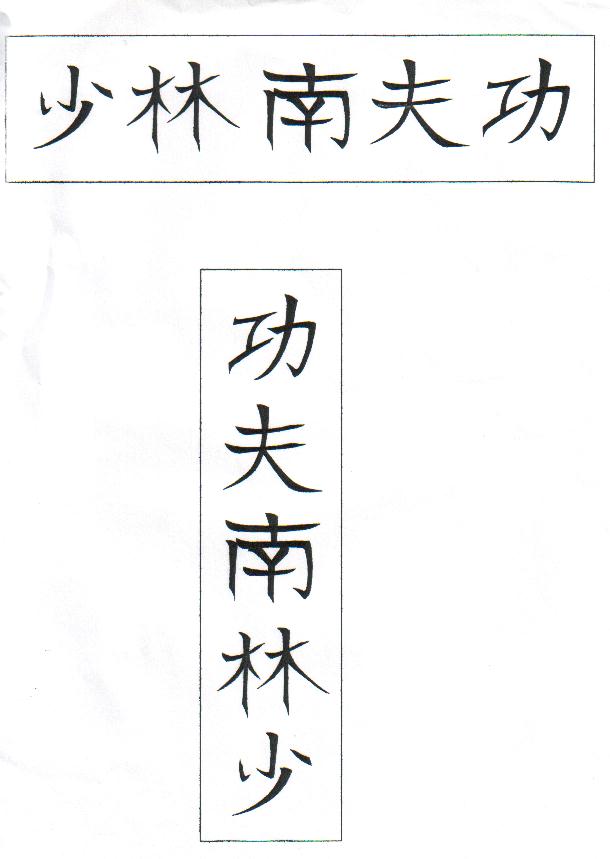 少林南夫功
功夫南林少